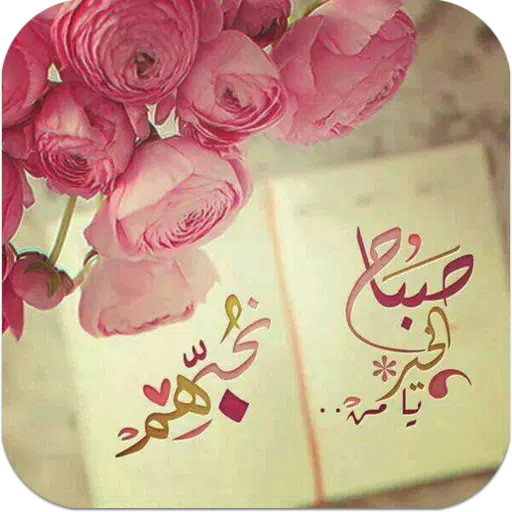 صباح
الخير
يا من..
نُحبّهم